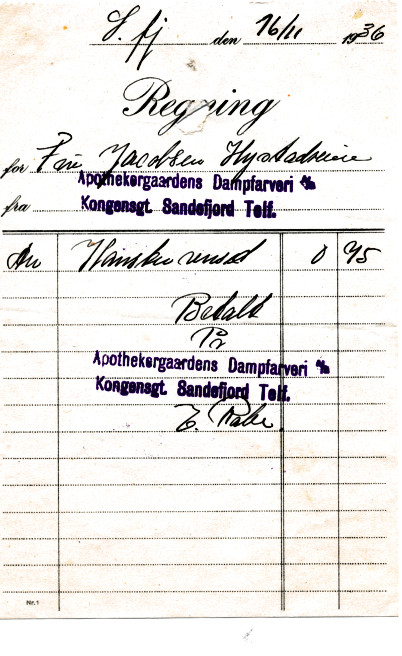 S. fj den 16/11 1936
Regning
for Fru Jacobsen Hystadveien
Apothekergaardens Dampfarveri A/S
fra Kongensgt. Sandefjord Telf.
An Hansker renset 0 75
Betalt
Pr
Apothekergaardens Dampfarveri A/S
Kongensgt. Sandefjord Telf.
E. Rabe
Nr. 1